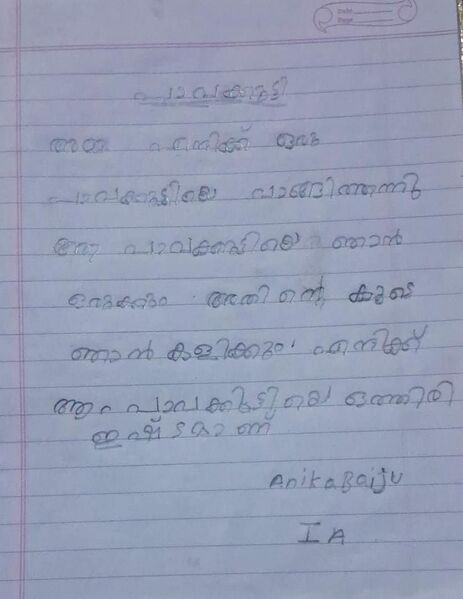 Date
Page
പാവക്കുട്ടി
അമ്മ എനിക്ക് ഒരു
പാവക്കുട്ടിയെ വാങ്ങിത്തന്നു
ആ പാവക്കുട്ടിയെ ഞാൻ
ഒരുക്കും അതിന്റെ കൂടെ
ഞാൻ കളിക്കും എനിക്ക്
ആ പാവക്കുട്ടിയെ ഒത്തിരി
ഇഷ്ടമാണ്
Anika Baiju
I A